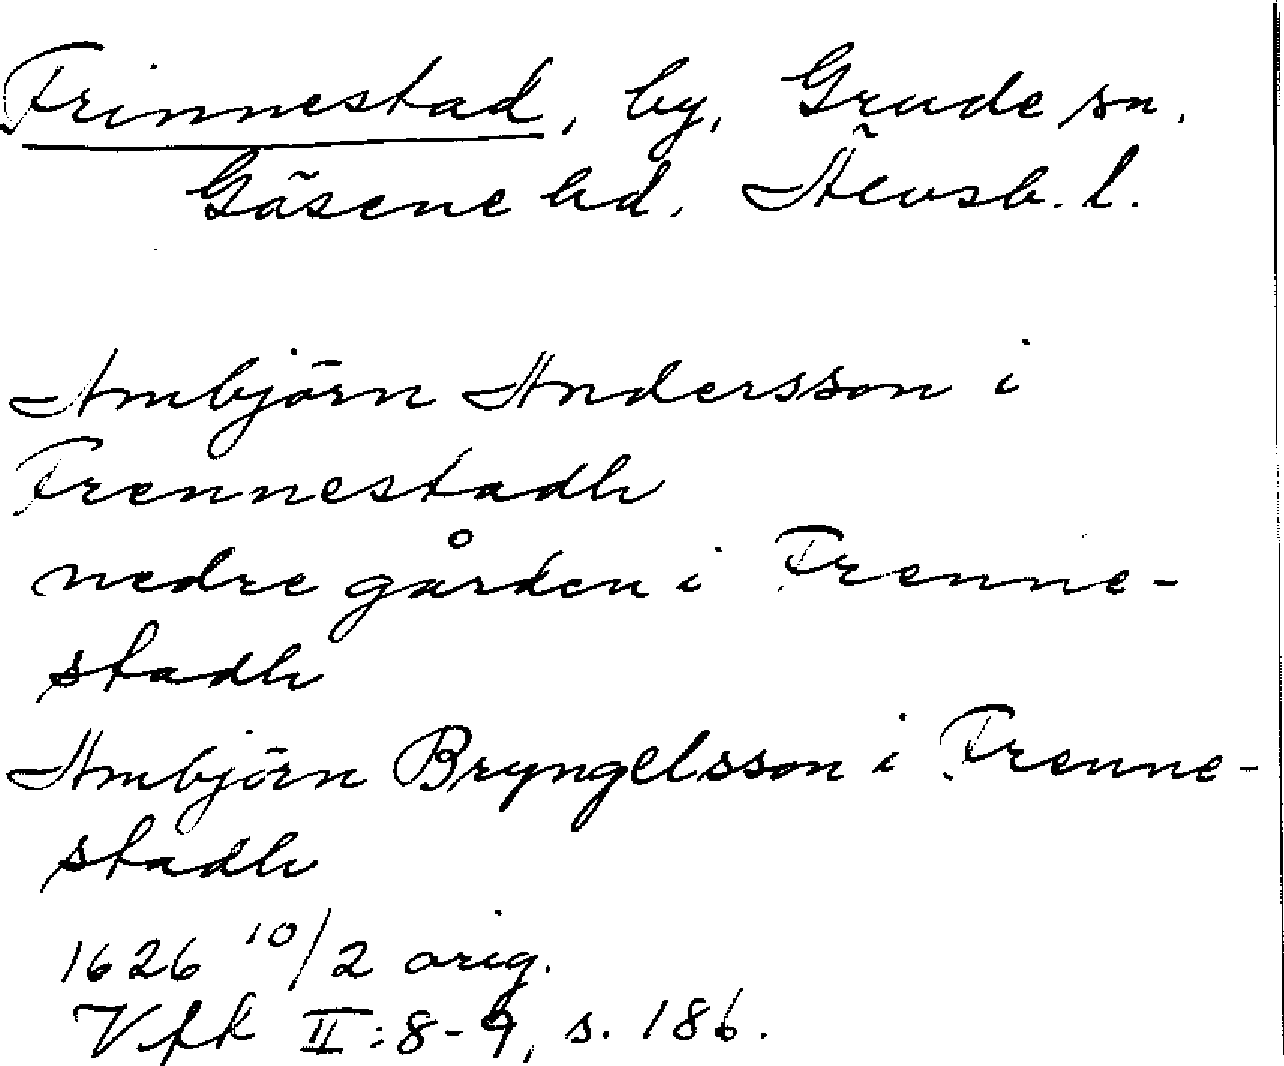 Frinnestad, by, Grude sn.
Gäsene hd. Älvsb. l.
Ambjörn Andersson i
Frennestadh
nedre gården i Frenne-
stadh
Ambjörn Bryngelsson i Frenne-
stadh
1626 10/2 orig.
Vfk II:8-9, s. 186.